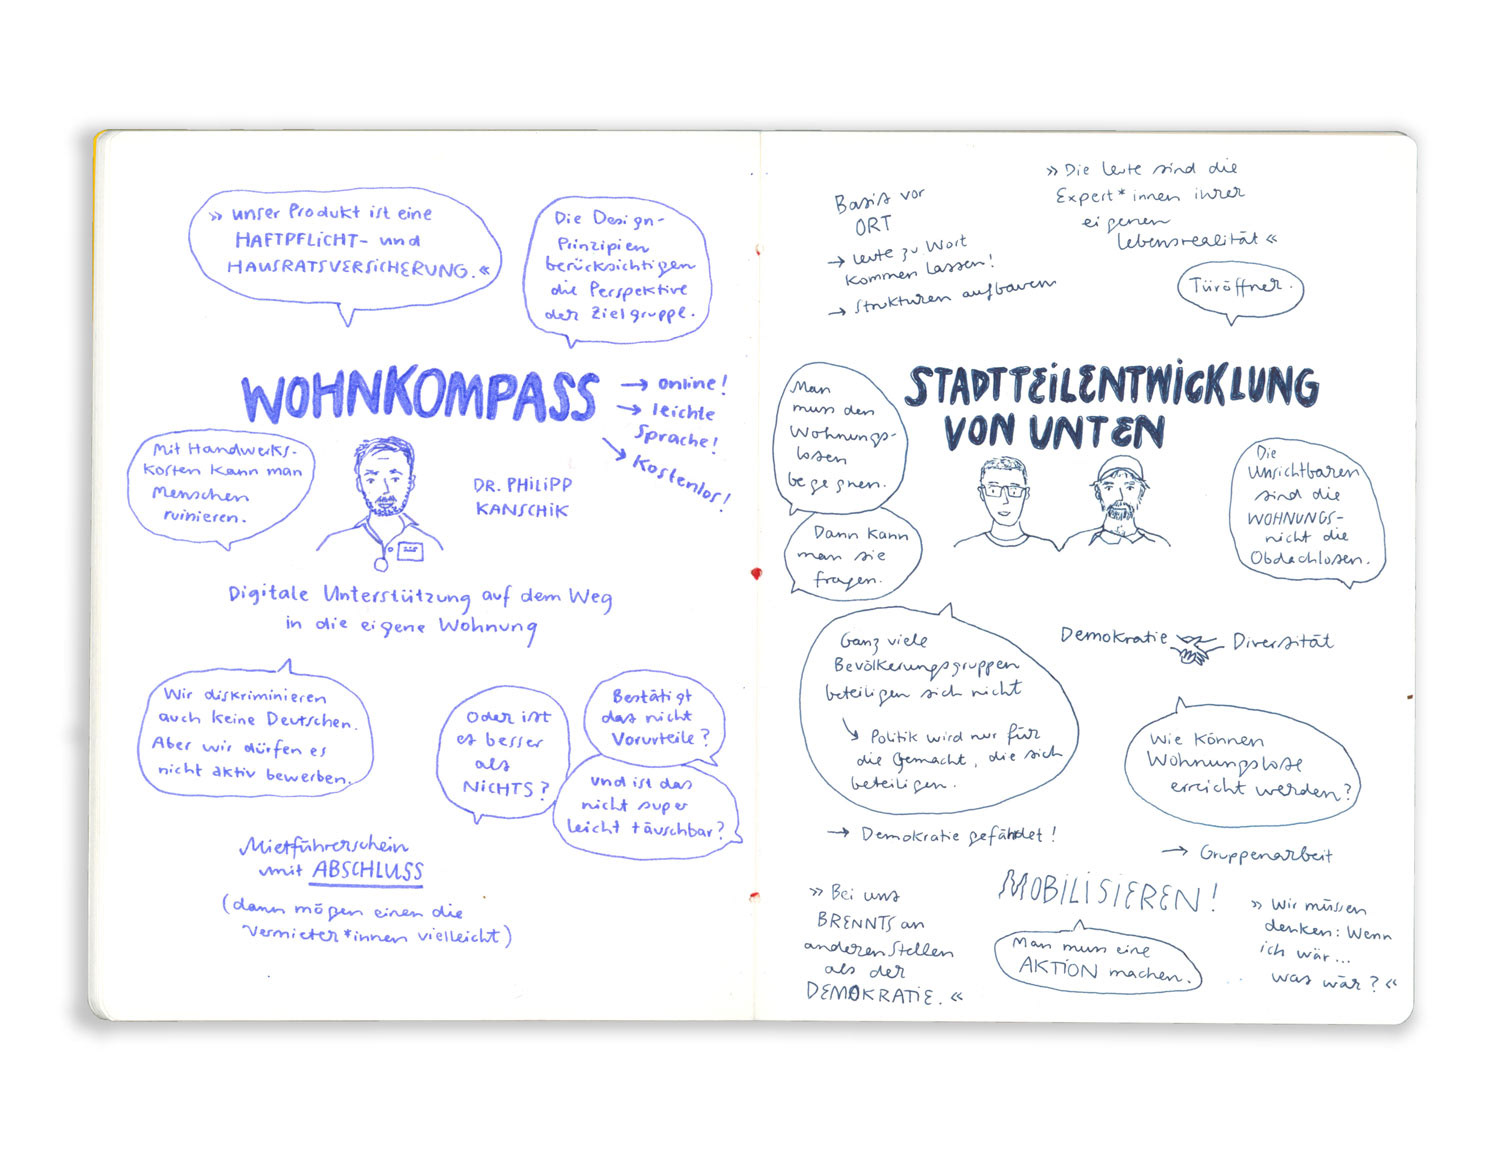 » unser Produkt ist eine
HAFTPFLICHT- und
HAUSRATSVERSICHERUNG. «
Die Design-
Prinzipien
berücksichtigen
die Perspektive
der Zielgruppe.
WOHNKOMPASS
→ online!
→ leichte
Sprache!
→ Kostenlos!
Mit Handwerks-
kosten kann man
Menschen
ruinieren.
DR. PHILIPP
KANSCHIK
Digitale Unterstützung auf dem Weg
in die eigene Wohnung
Wir diskriminieren
auch keine Deutschen.
Aber wir dürfen es
nicht aktiv bewerben.
Oder ist
es besser
als
NICHTS?
Bestätigt
das nicht
Vorurteile?
und ist das
nicht super
leicht täuschbar?
Mietführerschein
mit ABSCHLUSS
(dann mögen einen die
Vermieter*innen vielleicht)
Basis vor
ORT
→ Leute zu Wort
kommen lassen!
→ Strukturen aufbauen
» Die Leute sind die
Expert*innen ihrer
eigenen
Lebensrealität «
Türöffner.
STADTTEILENTWICKLUNG
VON UNTEN
Man
muss den
Wohnungs-
losen
begegnen.
Dann kann
man sie
fragen.
Die
Unsichtbaren
sind die
WOHNUNGS-
nicht die
Obdachlosen.
Ganz viele
Bevölkerungsgruppen
beteiligen sich nicht
↘ Politik wird nur für
die gemacht, die sich
beteiligen.
→ Demokratie gefährdet!
Demokratie Diversität
Wie können
Wohnungslose
erreicht werden?
→ Gruppenarbeit
MOBILISIEREN!
Man muss eine
AKTION machen.
» Bei uns
BRENNTS an
anderen Stellen
als der
DEMOKRATIE. «
» Wir müssen
denken: Wenn
ich wär...
was wär? «